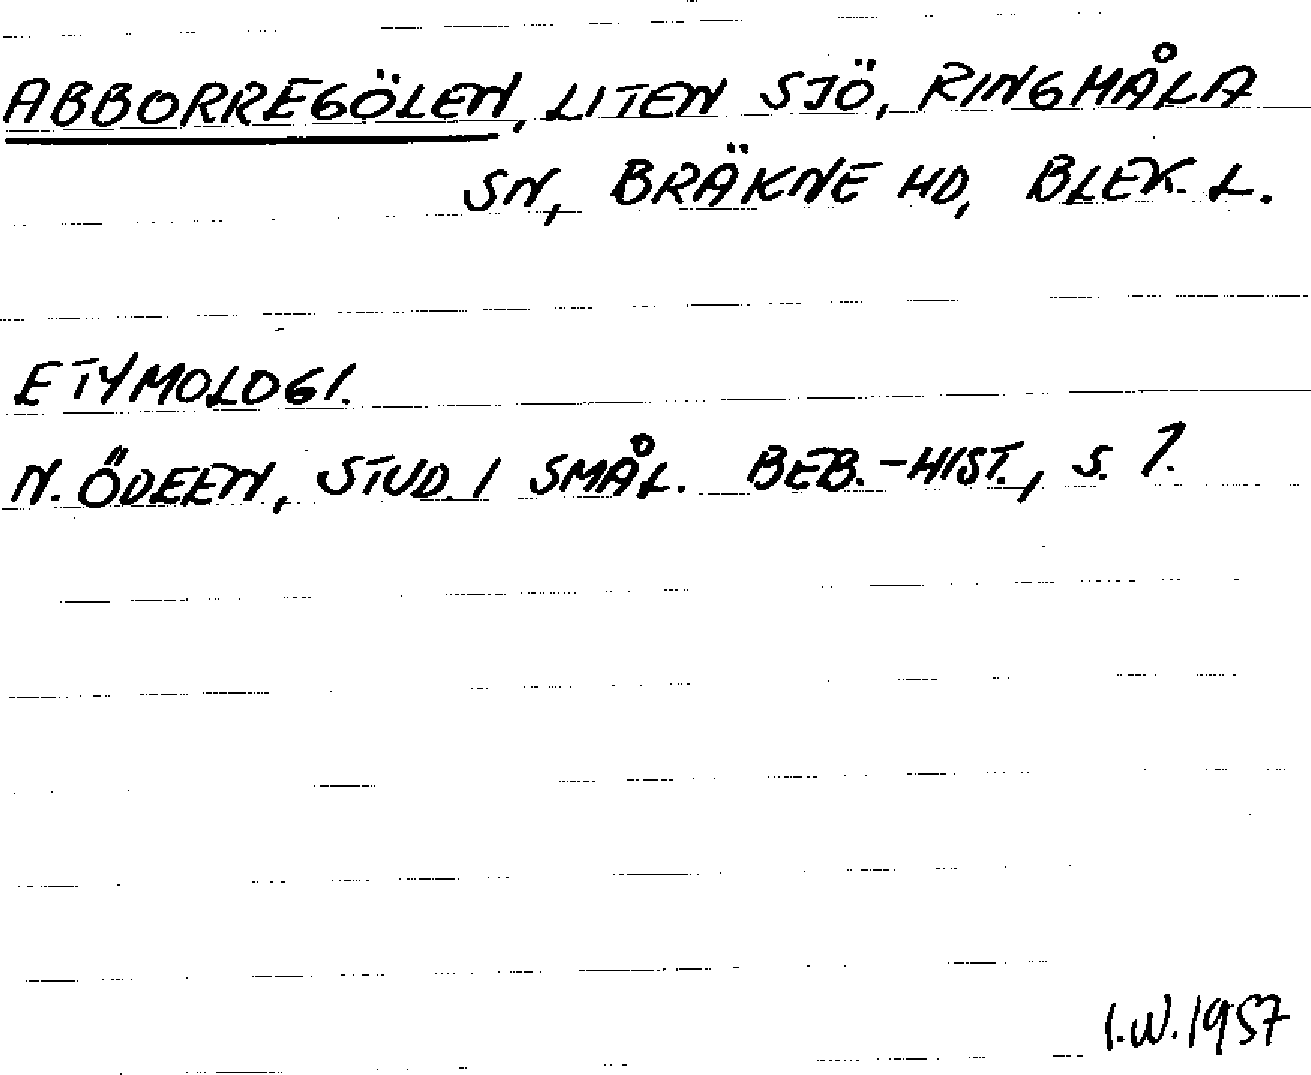 ABBORREGÖLEN, LITEN SJÖ, RINGMÅLA
SN, BRÄKNE HD, BLEK. L.
ETYMOLOGI.
N. ÖDEEN, STUD. I SMÅL. BEB.-HIST., S. 7.
I.W. 1957